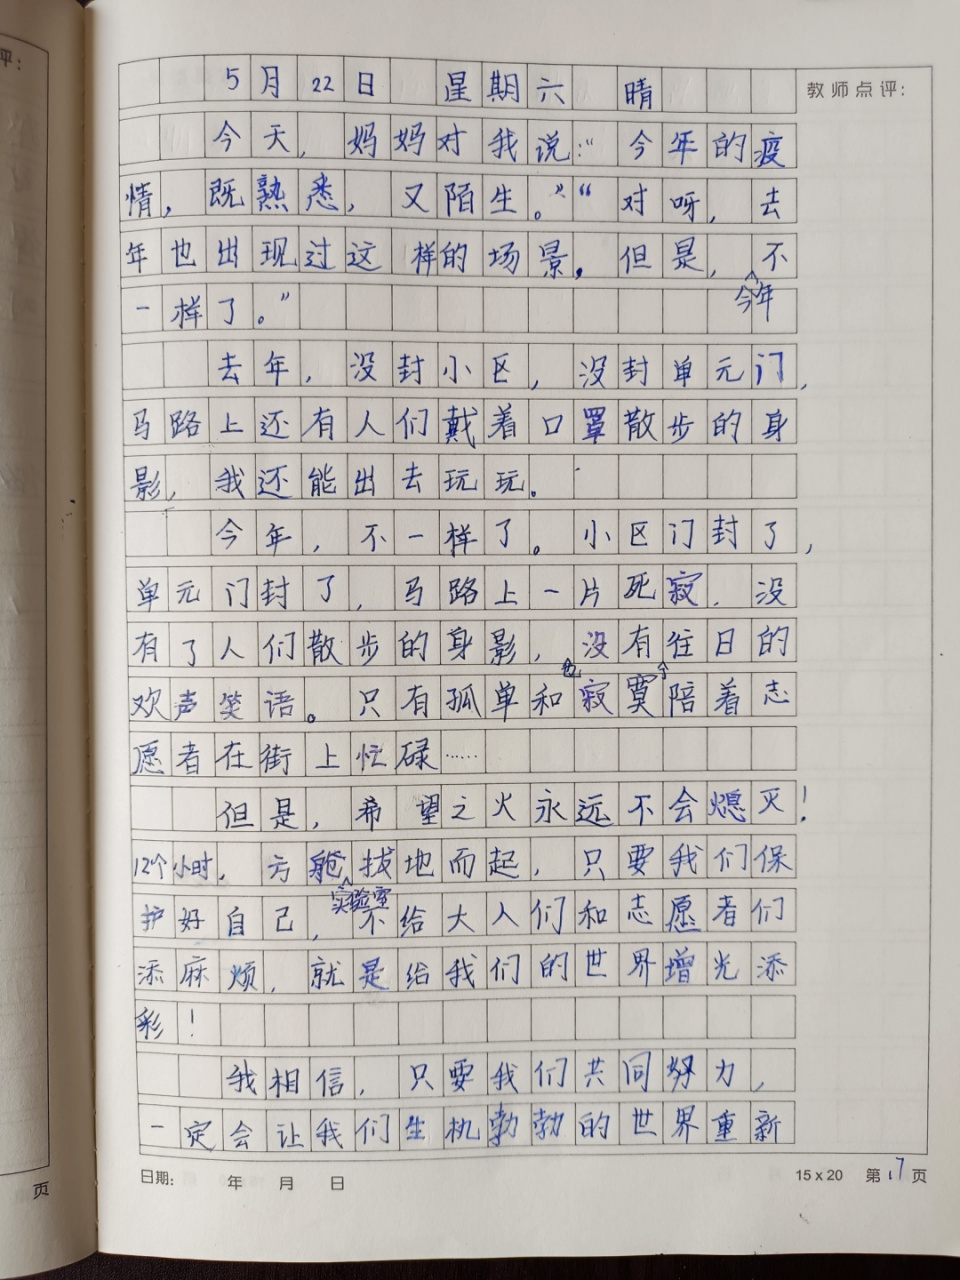 评:
教师点评:
5月22日 星期六 晴
今天,妈妈对我说:“今年的疫
情,既熟悉,又陌生。”“对呀,去
年也出现过这样的场景。但是,今年不
一样了。”
去年,没封小区,没封单元门,
马路上还有人们戴着口罩散步的身
影,我还能出去玩玩。
今年,不一样了。小区门封了,
单元门封了,马路上一片死寂,没
有了人们散步的身影,也没有往日的
欢声笑语。只有孤单和寂寞陪着志
愿者在街上忙碌……
但是,希望之火永远不会熄灭!
12个小时,方舱实验室拔地而起,只要我们保
护好自己,不给大人们和志愿者们
添麻烦,就是给我们的世界增光添
彩!
我相信,只要我们共同努力,
一定会让我们生机勃勃的世界重新
日期: 年 月 日 15x20 第17页
页